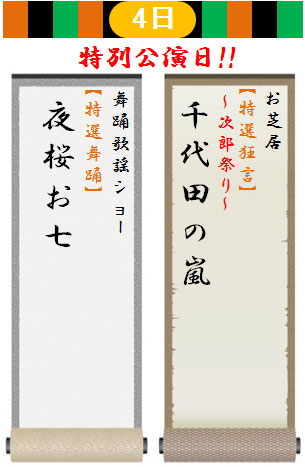 4日
特別公演日!!
お芝居
【特選狂言】
～次郎祭り～
千代田の嵐
舞踊歌謡ショー
【特選舞踊】
夜桜お七